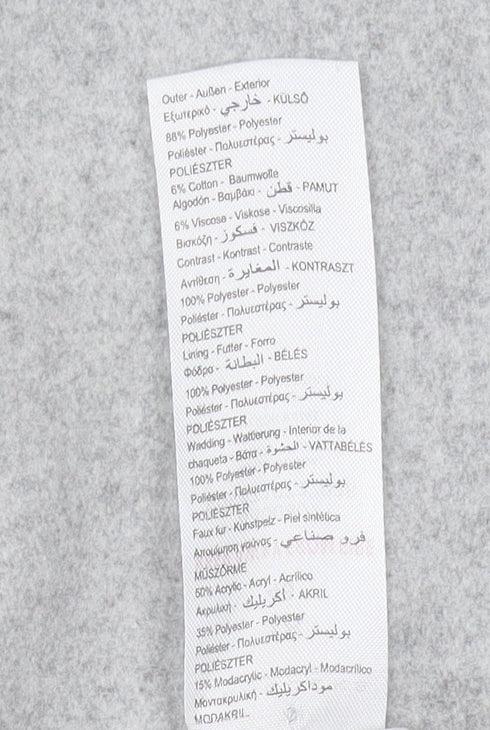 Outer - Außen - Exterior
Εξωτερικό - خارجي - KÜLSŐ
88% Polyester - Polyester
Poliéster - Πολυεστέρας - بوليستر
POLIÉSZTER
6% Cotton - Baumwolle
Algodón - Βαμβάκι - قطن - PAMUT
6% Viscose - Viskose - Viscosilla
Βισκόζη - فسكوز - VISZKÓZ
Contrast - Kontrast - Contraste
Αντίθεση - المغايرة - KONTRASZT
100% Polyester - Polyester
Poliéster - Πολυεστέρας - بوليستر
POLIÉSZTER
Lining - Futter - Forro
Φόδρα - البطانة - BÉLÉS
100% Polyester - Polyester
Poliéster - Πολυεστέρας - بوليستر
POLIÉSZTER
Wadding - Wattierung - Interior de la
chaqueta - Βάτα - الحشوة - VATTABÉLÉS
100% Polyester - Polyester
Poliéster - Πολυεστέρας - بوليستر
POLIÉSZTER
Faux fur - Kunstpelz - Piel sintética
Απομίμηση γούνας - فرو صناعي
MŰSZŐRME
50% Acrylic - Acryl - Acrílico
Ακρυλική - أكريليك - AKRIL
35% Polyester - Polyester
Poliéster - Πολυεστέρας - بوليستر
POLIÉSZTER
15% Modacrylic - Modacryl - Modacrílico
Μοντακρυλική - موداكريليك
MODAKRIL